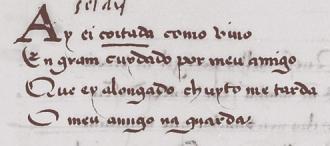 Ay eu coitada como viuo
En gram cuydado por meu amigo
Que ey alongado. chuyto me tarda
O meu amigo na guarda.